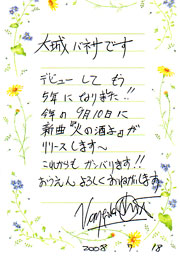 大城バネサです
デビューして もう
5年になりました!!
今年の9月10日に
新曲『火の酒子』が
リリースします〜
これからも ガンバります!!
おうえん よろしくおねがいします
2008 7 18